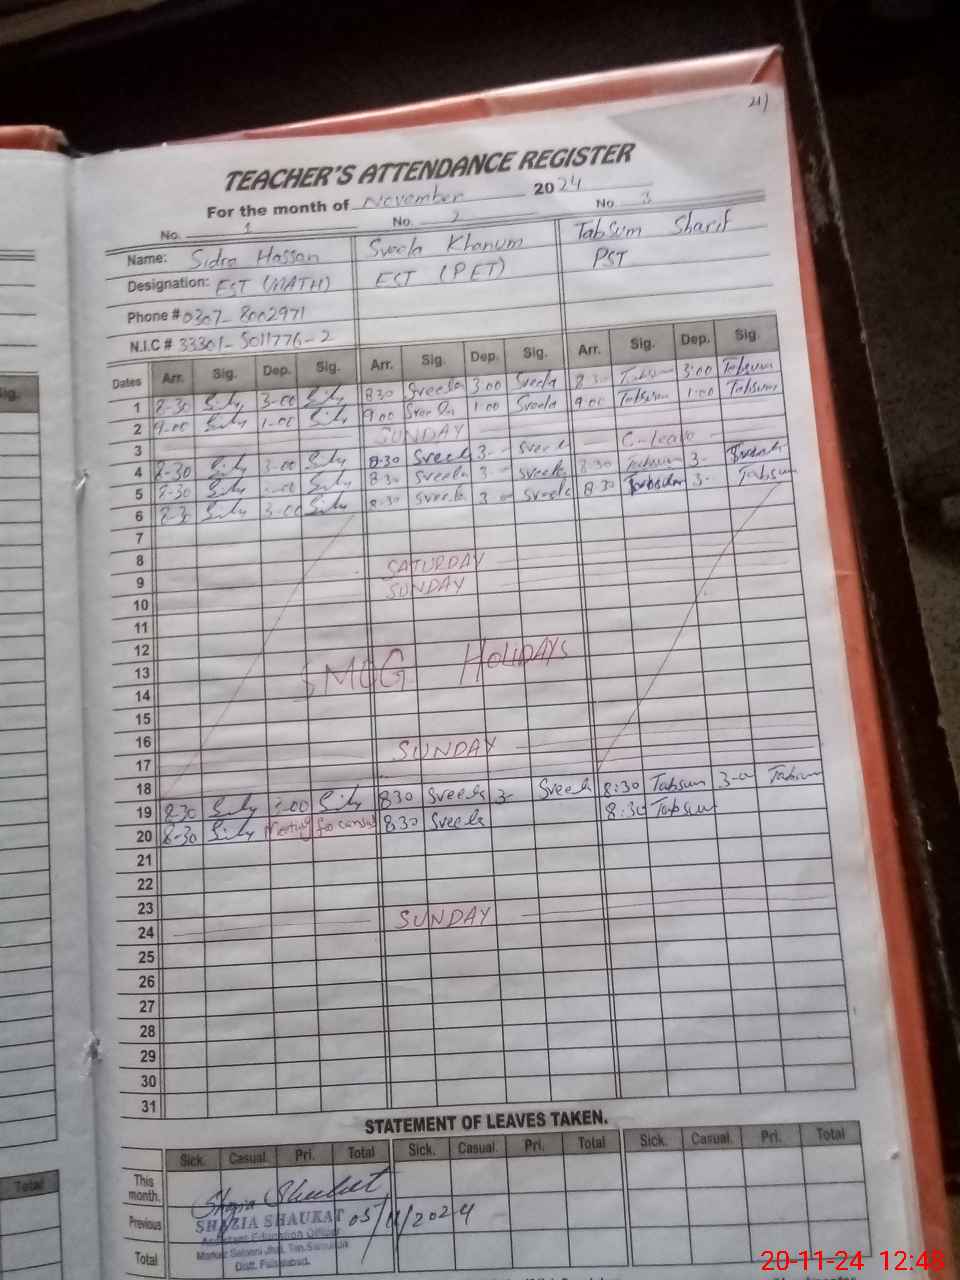 21)
TEACHER'S ATTENDANCE REGISTER
For the month of November 2024
No. 1 No. 2 No. 3
Name: Sidra Hassan Sveela Khanum Tabsum Sharif
Designation: EST (MATH) EST (PET) PST
Phone # 0307-8002971
N.I.C # 33301-5011776-2
Dates Arr. Sig. Dep. Sig. Arr. Sig. Dep. Sig. Arr. Sig. Dep. Sig.
1 8-30 3-00 8 30 Sveela 3 00 Sveela 8 30 Tabsum 3:00 Tabsum
2 9-00 1-00 9 00 Sveela 1 00 Sveela 9:00 Tabsum 1:00 Tabsum
3 SUNDAY
4 8-30 3-00 8-30 Sveela 3- Sveela C-leave
5 8-30 8 30 Sveela 3- Sveela 8 30 Tabsum 3-
6 8-30 3-00 8:30 Sveela 3 Sveela 8 30 3- Tabsum
7
8
9 SATURDAY
10 SUNDAY
11
12
13 SMOG HOLIDAYS
14
15
16
17 SUNDAY
18
19 8-30 3-00 8 30 Sveela 3- Sveela 8:30 Tabsum 3-0 Tabsum
20 8-30 Meeting for census 8 30 Sveela 8:30 Tabsum
21
22
23
24 SUNDAY
25
26
27
28
29
30
31
STATEMENT OF LEAVES TAKEN.
Sick. Casual. Pri. Total Sick. Casual. Pri. Total Sick. Casual. Pri. Total
This month.
Previous
Total
Shazia Shaukat
SHAZIA SHAUKAT 05/11/2024
Assistant Education Officer
Distt. Faisalabad.
Sig.
Total
20-11-24 12:48